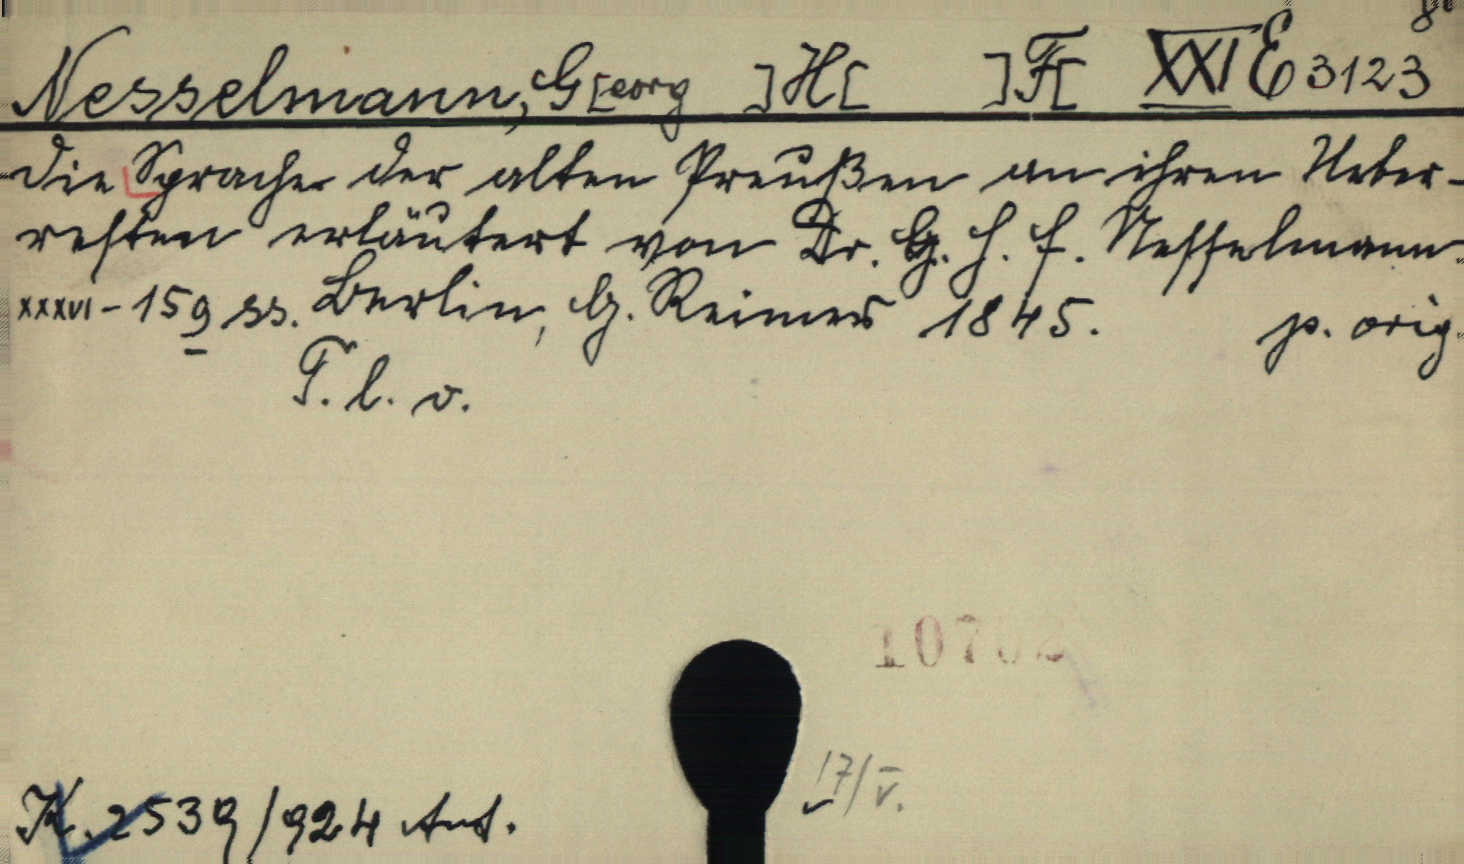 8°
Nesselmann, G[eorg ]H[ ]F[ XXI E 3123
Die Sprache der alten Preußen an ihren Ueber-
resten erläutert von Dr. G. H. F. Nesselmann.
XXXVI-159 ss. Berlin, G. Reimer 1845. p. orig.
T. l. v.
17/V.
K. 2539/924 Ant.